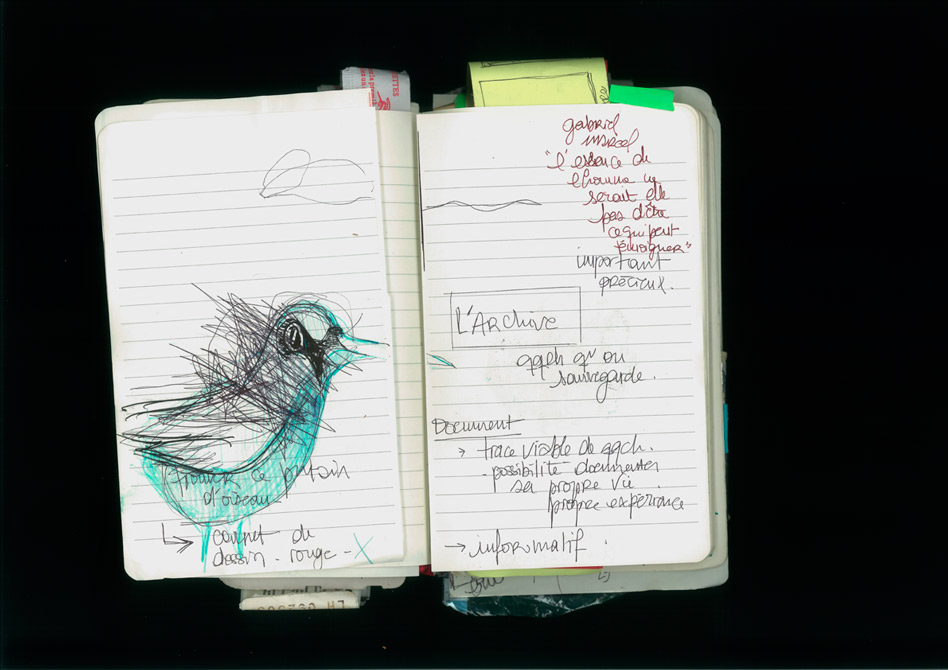 ce putain
d'oiseau
carnet de
dessin - rouge - X
gabriel
marcel
"l'essence de
l'homme ne
serait elle
pas d'être
ce qui peut
témoigner"
important
précieux.
L'ARchive
qqch qu'on
sauvegarde.
Document
→ trace visible de qqch.
- possibilité documenter
sa propre vie.
propre expérience
→ informatif